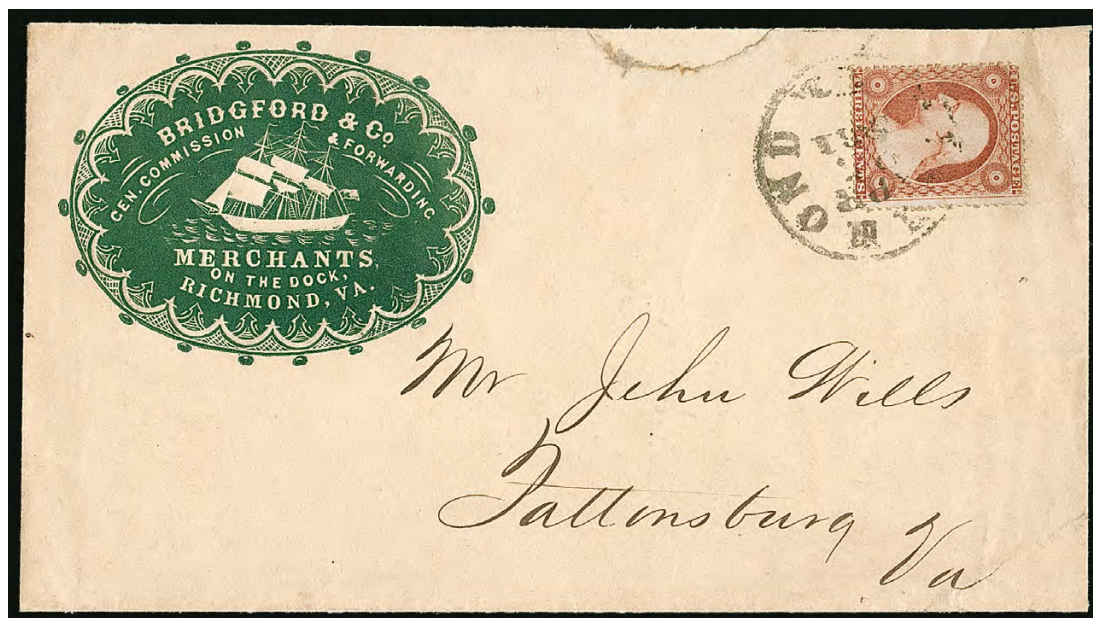 BRIDGFORD & CO
GEN. COMMISSION & FORWARDING
MERCHANTS,
ON THE DOCK,
RICHMOND, VA.
U.S. POSTAGE
THREE CENTS
MOND
Mr John Wills
Tattonsburg
Va